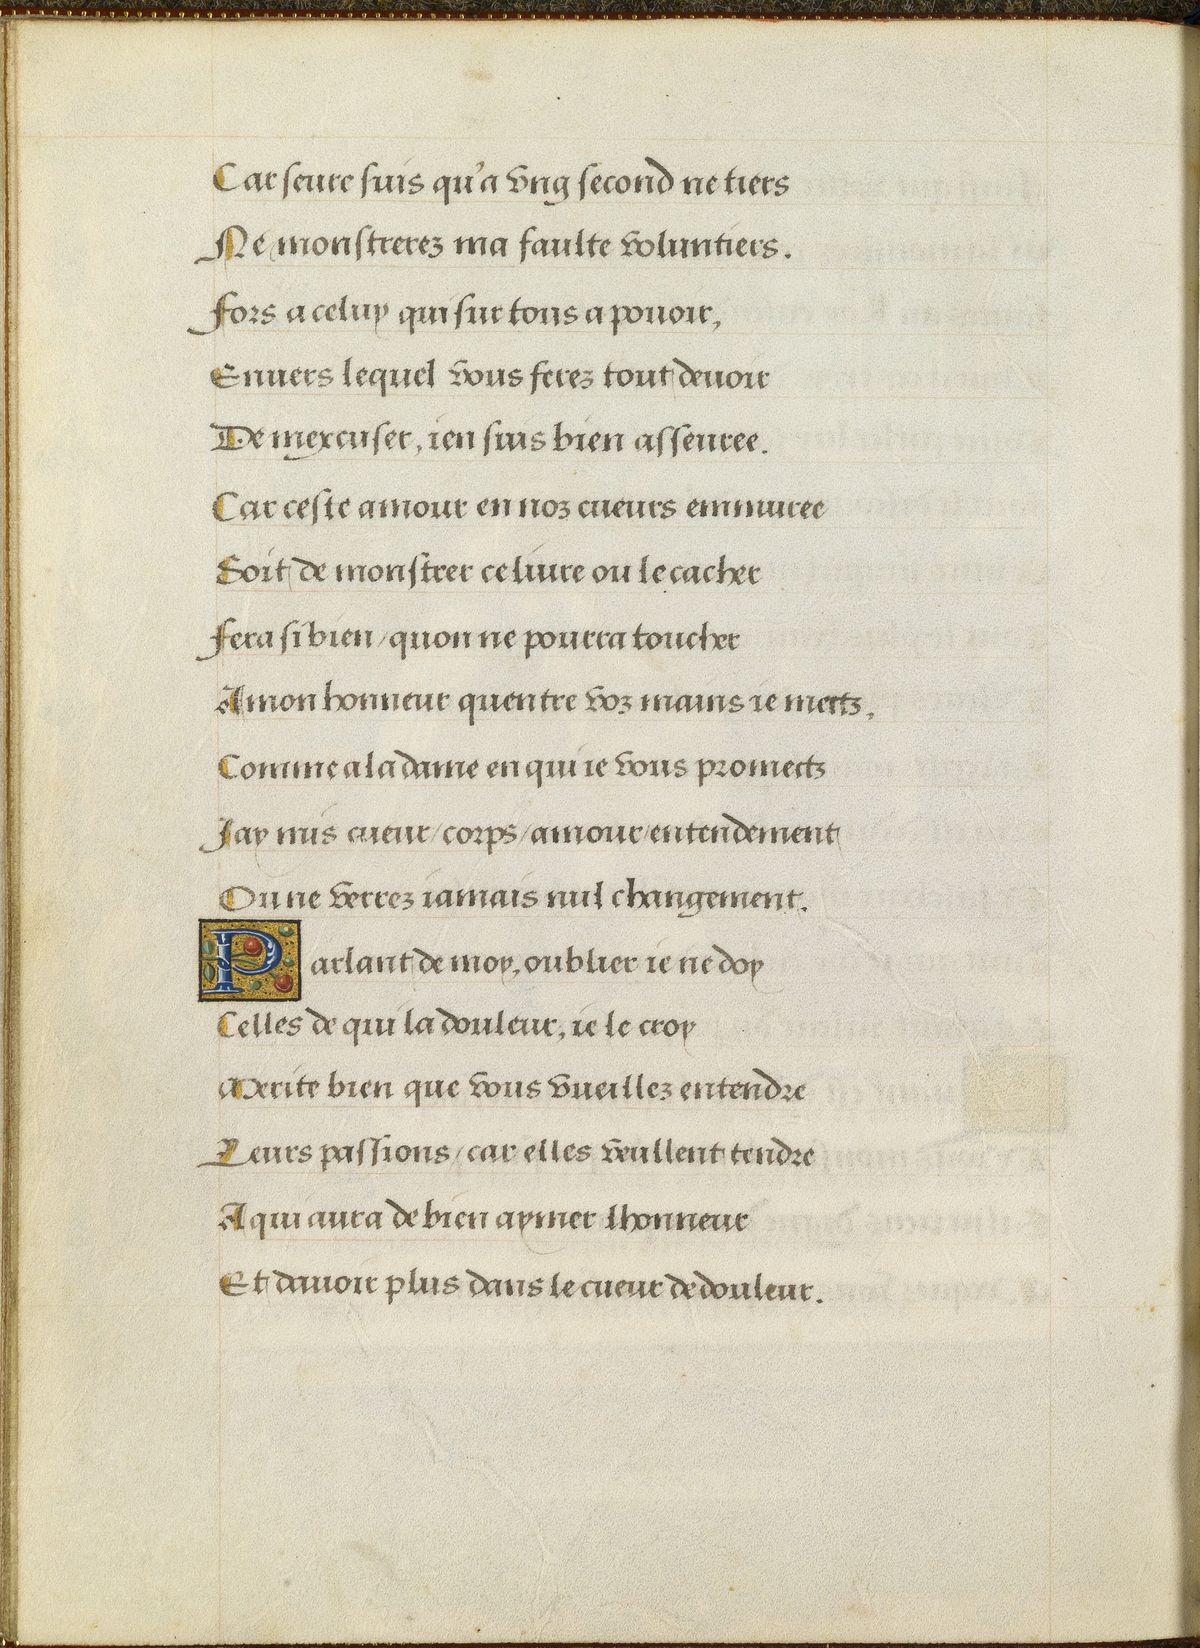 Car seure suis qu'a vng second ne tiers
Ne monstrerez ma faulte voluntiers.
Fors a celuy qui sur tous a pouoir,
Enuers lequel vous ferez tout deuoir
De mexcuser, ien suis bien asseuree.
Car ceste amour en noz cueurs emmuree
Soit de monstrer ce liure ou le cacher
Fera si bien/quon ne pourra toucher
A mon honneur quentre voz mains ie mectz,
Comme a la dame en qui ie vous promectz
Jay mis cueur/corps/amour/entendement
Ou ne verrez iamais nul changement.
Parlant de moy, oublier ie ne doy
Celles de qui la douleur, ie le croy
Merite bien que vous vueillez entendre
Leurs passions/car elles veullent tendre
A qui aura de bien aymer lhonneur
Et dauoir plus dans le cueur de douleur.